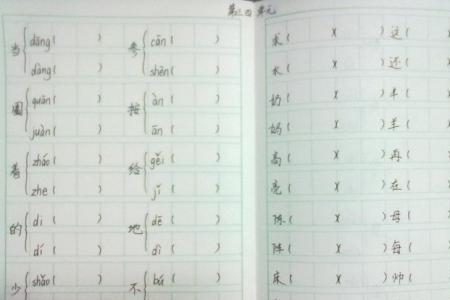 第三四单元
当 dāng ( ) 参 cān ( )
dàng ( ) shēn ( )
圈 quān ( ) 按 àn ( )
juàn ( ) ān ( )
着 zháo ( ) 给 gěi ( )
zhe ( ) jǐ ( )
的 dī ( ) 地 dē ( )
dí ( ) dì ( )
少 shǎo ( ) 不 bú ( )
求 ( ) ( ) 这 (
( ) ( ) 还 (
奶 ( ) ( ) 丰 (
妈 ( ) ( ) 羊 (
高 ( ) ( ) 再 (
亮 ( ) ( ) 在 (
陈 ( ) ( ) 母 (
阵 ( ) ( ) 每 (
床 ( ) ( ) 帅 (